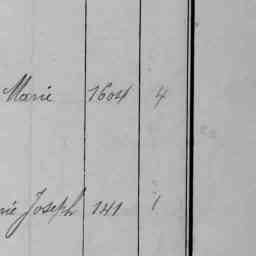 Marie 1604 4
rie Joseph 141 1